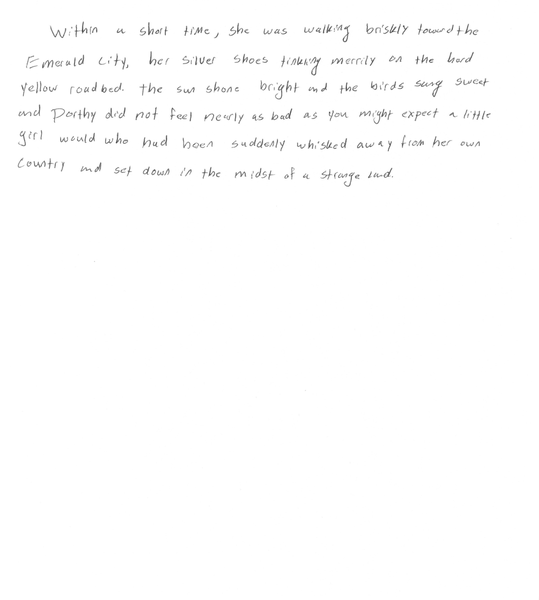 Within a short time, she was walking briskly toward the
Emerald City, her Silver Shoes tinkling merrily on the hard
yellow roadbed. The sun shone bright and the birds sang sweet
and Dorthy did not feel nearly as bad as you might expect a little
girl would who had been suddenly whisked away from her own
Country and set down in the midst of a strange land.